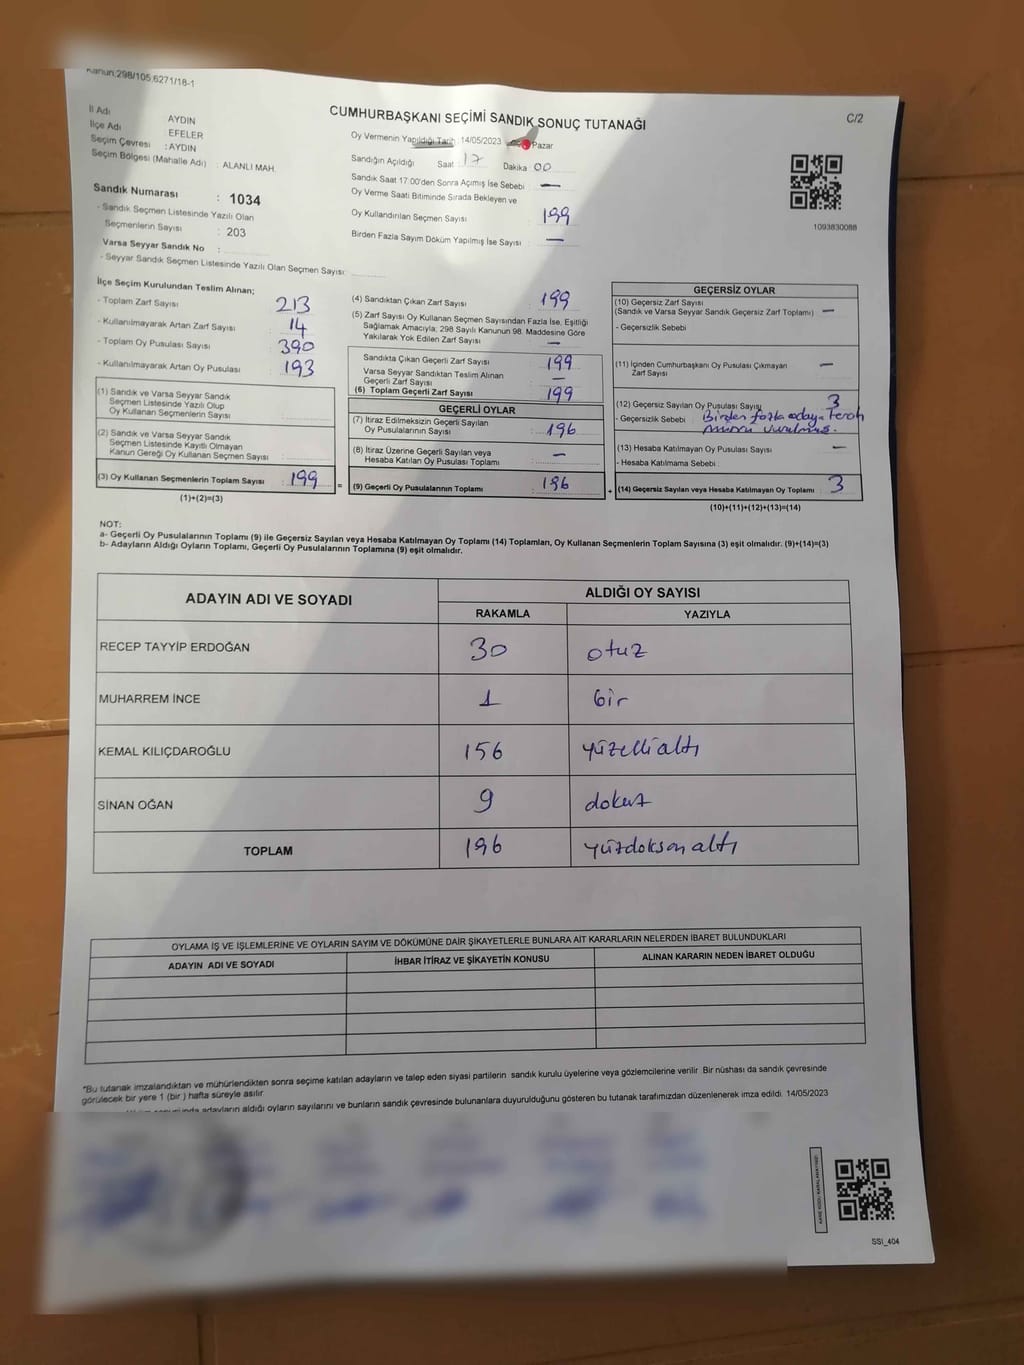 Kanun:298/105;6271/18-1
CUMHURBAŞKANI SEÇİMİ SANDIK SONUÇ TUTANAĞI
C/2
İl Adı AYDIN
İlçe Adı : EFELER
Seçim Çevresi : AYDIN
Seçim Bölgesi (Mahalle Adı) : ALANLI MAH.
Sandık Numarası : 1034
- Sandık Seçmen Listesinde Yazılı Olan
Seçmenlerin Sayısı : 203
Varsa Seyyar Sandık No :
- Seyyar Sandık Seçmen Listesinde Yazılı Olan Seçmen Sayısı:
Oy Vermenin Yapıldığı Tarih: 14/05/2023 Pazar
Sandığın Açıldığı Saat : 17 Dakika 00
Sandık Saat 17:00'den Sonra Açımış İse Sebebi : —
Oy Verme Saati Bitiminde Sırada Bekleyen ve
Oy Kullandırılan Seçmen Sayısı : 199
Birden Fazla Sayım Döküm Yapılmış İse Sayısı : —
1093830088
İlçe Seçim Kurulundan Teslim Alınan;
- Toplam Zarf Sayısı : 213
- Kullanılmayarak Artan Zarf Sayısı : 14
- Toplam Oy Pusulası Sayısı : 390
- Kullanılmayarak Artan Oy Pusulası : 193
(1) Sandık ve Varsa Seyyar Sandık
Seçmen Listesinde Yazılı Olup
Oy Kullanan Seçmenlerin Sayısı :
(2) Sandık ve Varsa Seyyar Sandık
Seçmen Listesinde Kayıtlı Olmayan
Kanun Gereği Oy Kullanan Seçmen Sayısı :
(3) Oy Kullanan Seçmenlerin Toplam Sayısı : 199 =
(1)+(2)=(3)
(4) Sandıktan Çıkan Zarf Sayısı : 199
(5) Zarf Sayısı Oy Kullanan Seçmen Sayısından Fazla İse, Eşitliği
Sağlamak Amacıyla; 298 Sayılı Kanunun 98. Maddesine Göre
Yakılarak Yok Edilen Zarf Sayısı : —
Sandıkta Çıkan Geçerli Zarf Sayısı : 199
Varsa Seyyar Sandıktan Teslim Alınan
Geçerli Zarf Sayısı : —
(6) Toplam Geçerli Zarf Sayısı : 199
GEÇERLİ OYLAR
(7) İtiraz Edilmeksizin Geçerli Sayılan
Oy Pusulalarının Sayısı : 196
(8) İtiraz Üzerine Geçerli Sayılan veya
Hesaba Katılan Oy Pusulası Toplamı : —
(9) Geçerli Oy Pusulalarının Toplamı : 196 +
GEÇERSİZ OYLAR
(10) Geçersiz Zarf Sayısı
(Sandık ve Varsa Seyyar Sandık Geçersiz Zarf Toplamı) : —
- Geçersizlik Sebebi :
(11) İçinden Cumhurbaşkanı Oy Pusulası Çıkmayan : —
Zarf Sayısı
(12) Geçersiz Sayılan Oy Pusulası Sayısı : 3
- Geçersizlik Sebebi : Birden fazla adaya Tercih
mührü vurulmuş.
(13) Hesaba Katılmayan Oy Pusulası Sayısı : —
- Hesaba Katılmama Sebebi :
(14) Geçersiz Sayılan veya Hesaba Katılmayan Oy Toplamı : 3
(10)+(11)+(12)+(13)=(14)
NOT:
a- Geçerli Oy Pusulalarının Toplamı (9) ile Geçersiz Sayılan veya Hesaba Katılmayan Oy Toplamı (14) Toplamları, Oy Kullanan Seçmenlerin Toplam Sayısına (3) eşit olmalıdır. (9)+(14)=(3)
b- Adayların Aldığı Oyların Toplamı, Geçerli Oy Pusulalarının Toplamına (9) eşit olmalıdır.
ADAYIN ADI VE SOYADI ALDIĞI OY SAYISI
RAKAMLA YAZIYLA
RECEP TAYYİP ERDOĞAN 30 otuz
MUHARREM İNCE 1 bir
KEMAL KILIÇDAROĞLU 156 yüzellialtı
SİNAN OĞAN 9 dokuz
TOPLAM 196 yüzdoksanaltı
OYLAMA İŞ VE İŞLEMLERİNE VE OYLARIN SAYIM VE DÖKÜMÜNE DAİR ŞİKAYETLERLE BUNLARA AİT KARARLARIN NELERDEN İBARET BULUNDUKLARI
ADAYIN ADI VE SOYADI İHBAR İTİRAZ VE ŞİKAYETİN KONUSU ALINAN KARARIN NEDEN İBARET OLDUĞU
*Bu tutanak imzalandıktan ve mühürlendikten sonra seçime katılan adayların ve talep eden siyasi partilerin sandık kurulu üyelerine veya gözlemcilerine verilir. Bir nüshası da sandık çevresinde
görülecek bir yere 1 (bir) hafta süreyle asılır.
adayların aldığı oyların sayılarını ve bunların sandık çevresinde bulunanlara duyurulduğunu gösteren bu tutanak tarafımızdan düzenlenerek imza edildi. 14/05/2023
SSI_404